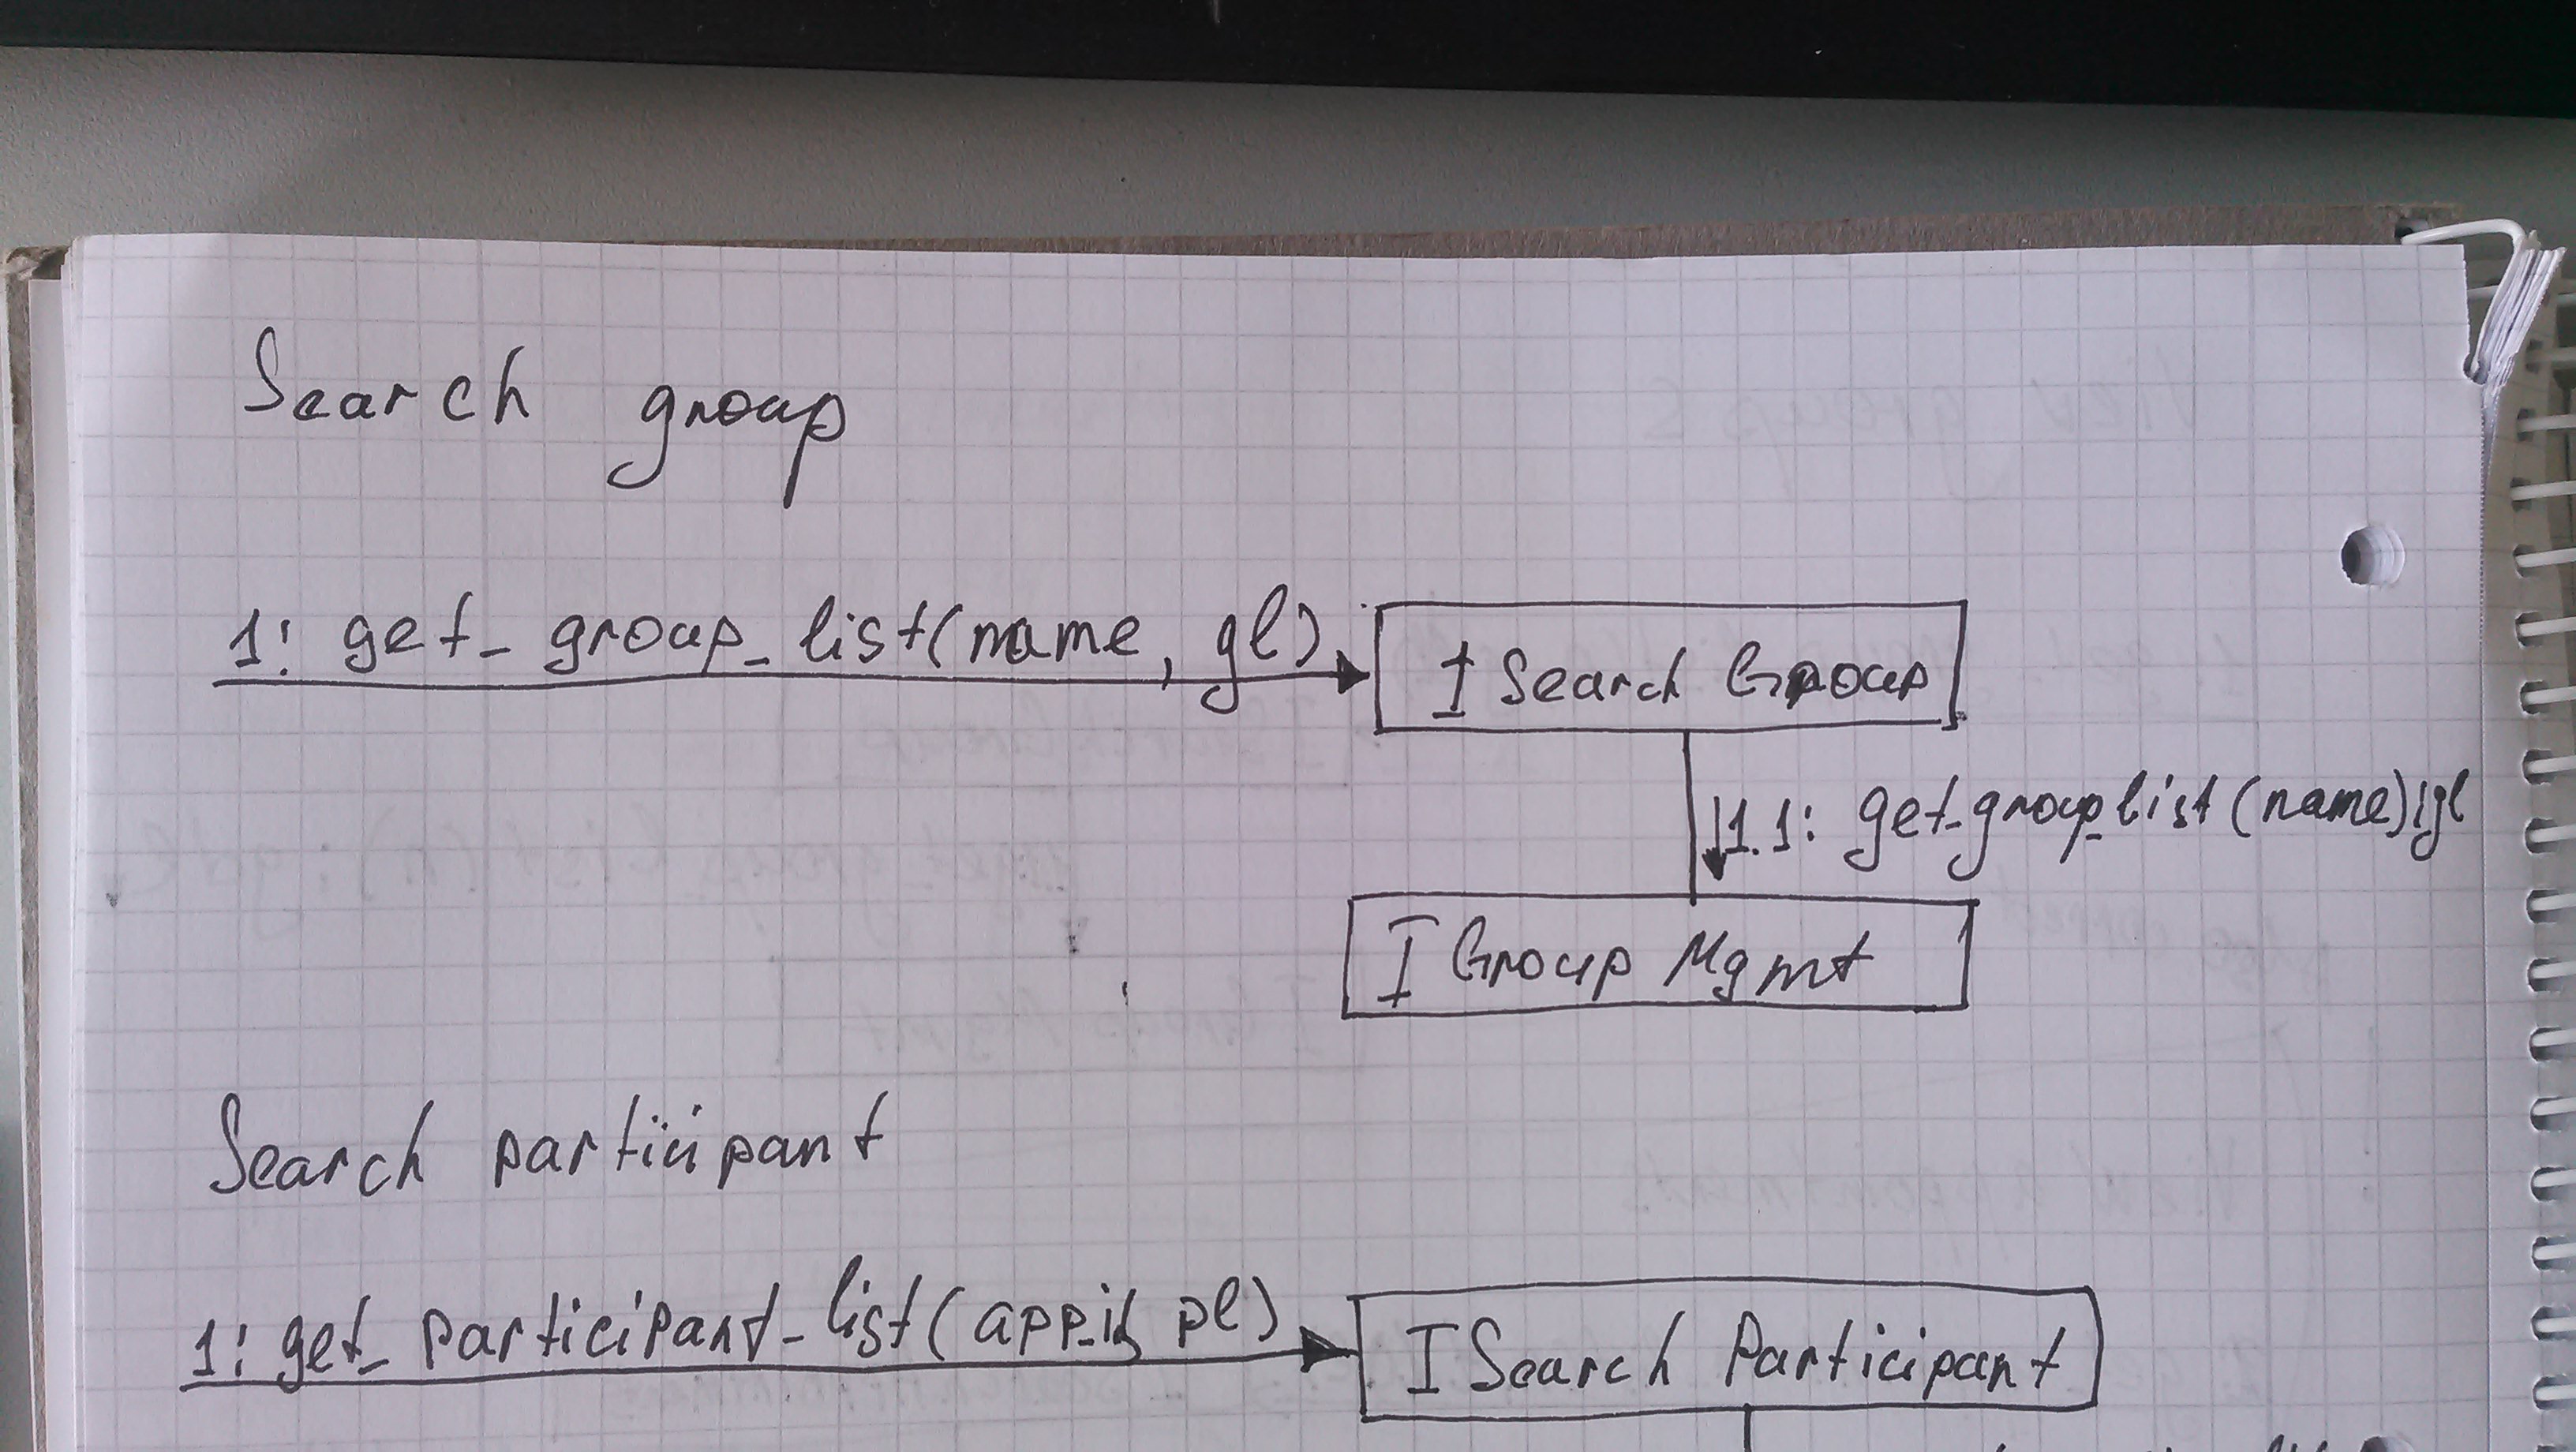 Search group
1: get_group_list(name, gl)
I Search Group
1.1: get_group_list(name):gl
I Group Mgmt
Search participant
1: get_participant_list(app_id, pl)
I Search Participant